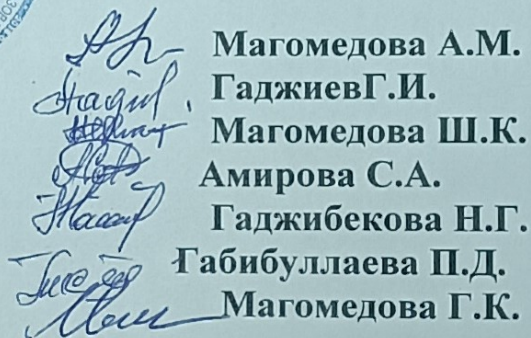 Магомедова А.М.
ГаджиевГ.И.
Магомедова Ш.К.
Амирова С.А.
Гаджибекова Н.Г.
Габибуллаева П.Д.
Магомедова Г.К.